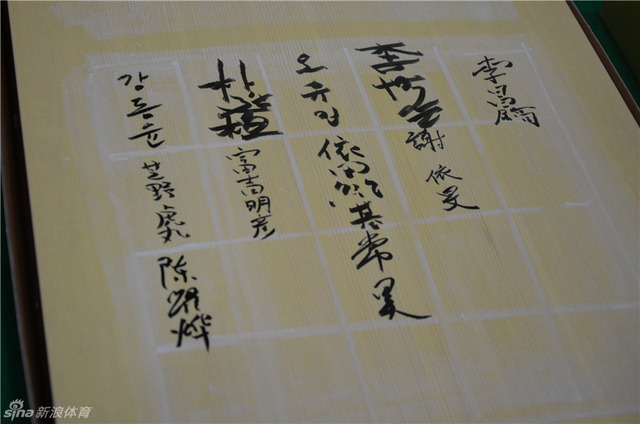 李昌鎬
李世乭
謝依旻
오유진
依田紀基
常昊
朴
富士田明彦
강동윤
芝野虎丸
陈耀烨
sina新浪体育